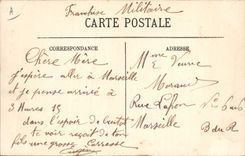 A
Franchise Militaire
CARTE POSTALE
CORRESPONDANCE
ADRESSE
Chère Mère
j'espère aller à Marseille
et je pense arrivé à
3 Heures 15
dans l'espoir de
te voir reçoit de ton
fils une grosse Carresse
Mme Veuve
Morand
Rue Lafon
Marseille
B du R